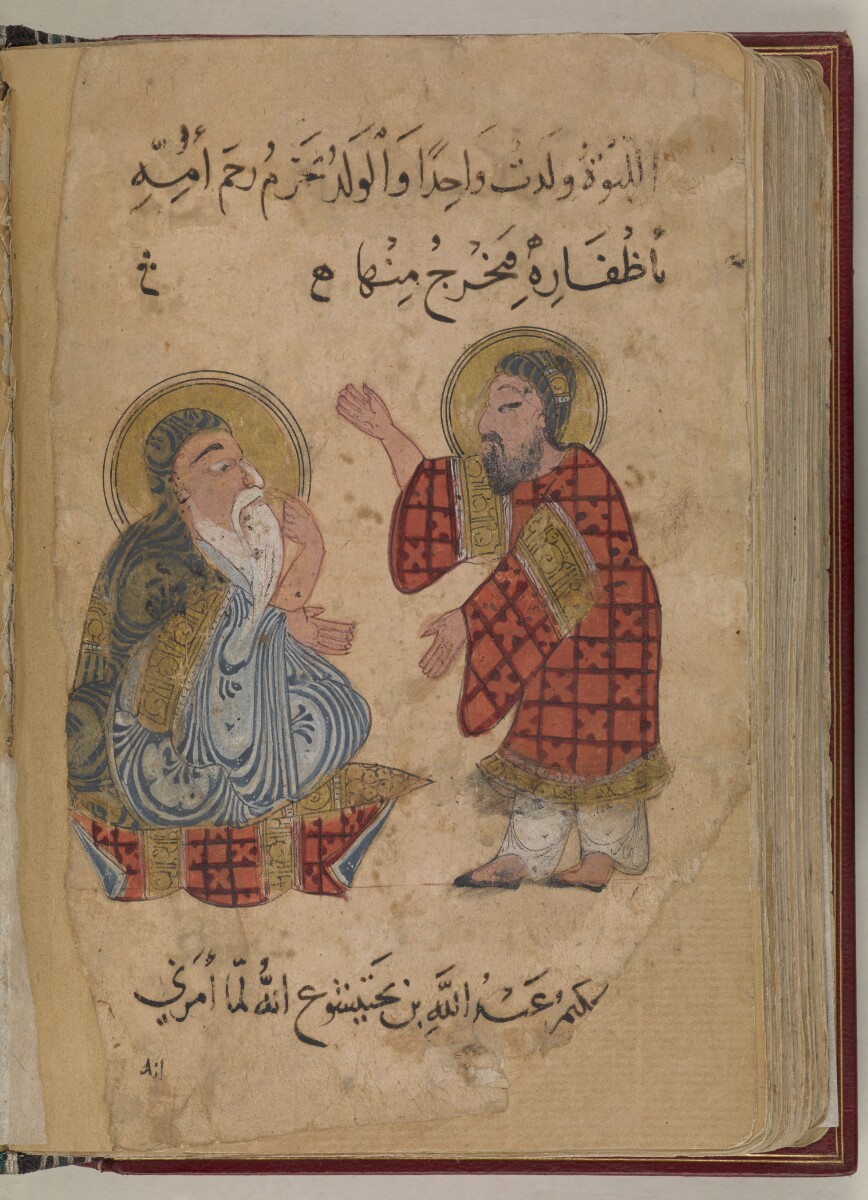 اللبوة ولدت واحدًا وَالْوَلَدُ يَخْرِمُ رَحِمَ أُمِّهِ
بأظْفَارِهِ فَيَخْرُجُ مِنْها ه
عَبْدُ اللَّهِ بن بختيشوع انَّهُ لَمَّا أَمَرَنِي